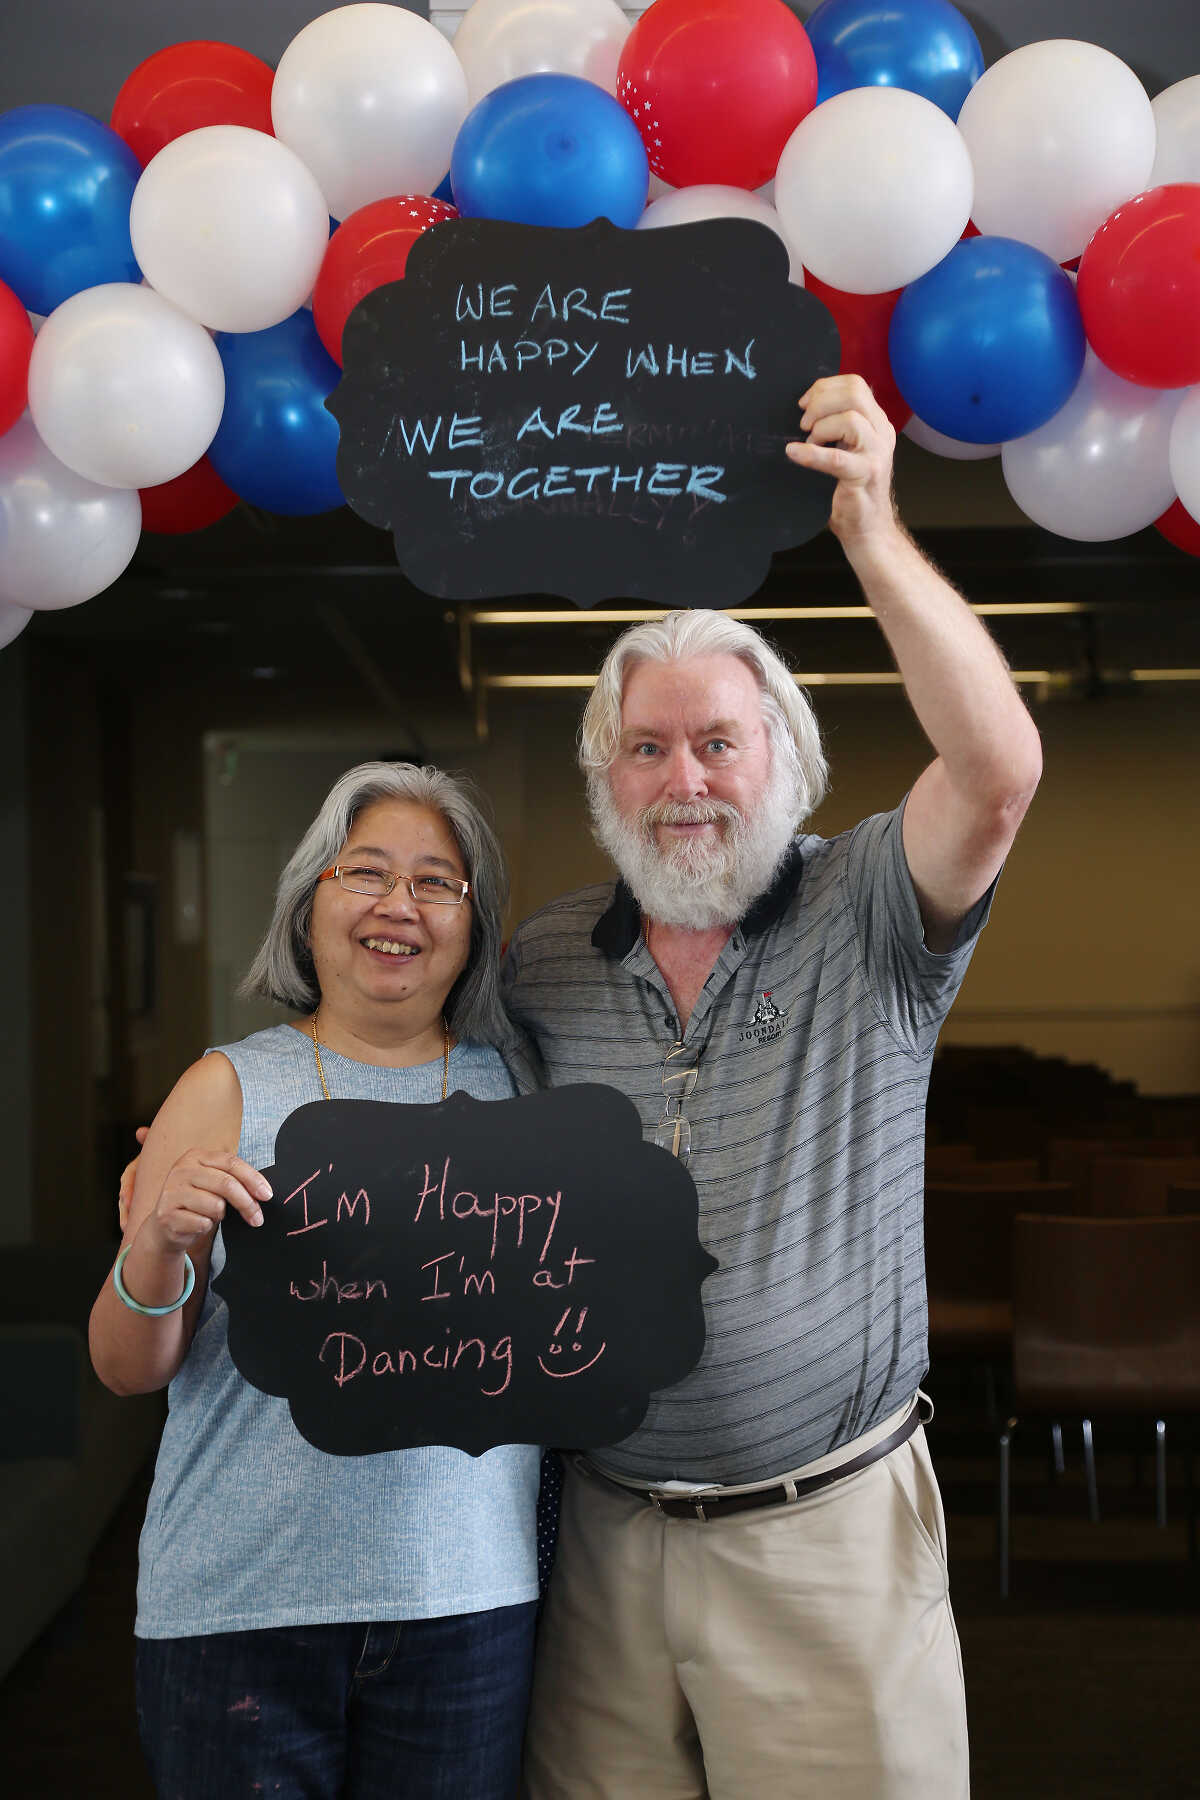 WE ARE
HAPPY WHEN
WE ARE
TOGETHER
JOONDAL
RESORT
I'm Happy
when I'm at
Dancing !!